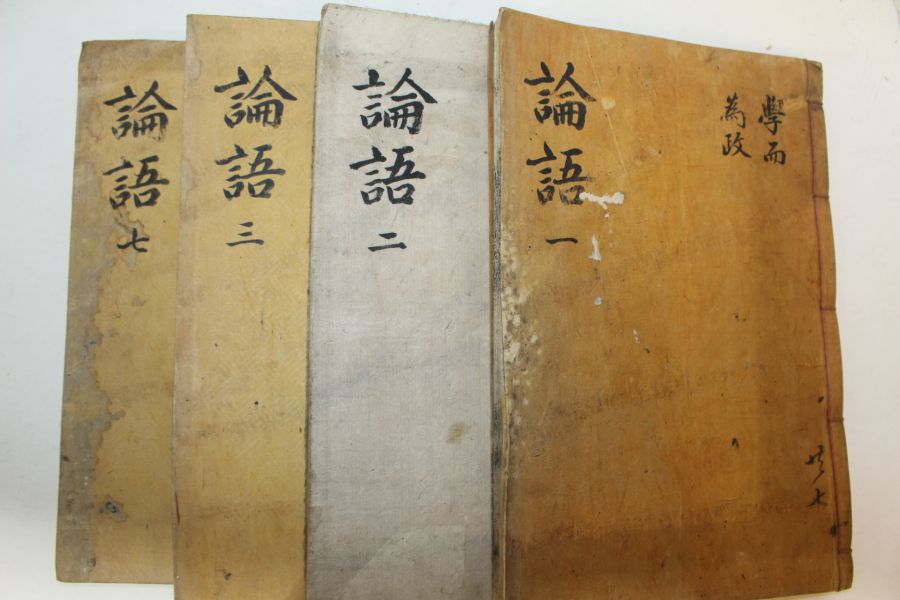 論語一
學而
為政
共七
論語二
論語三
論語七